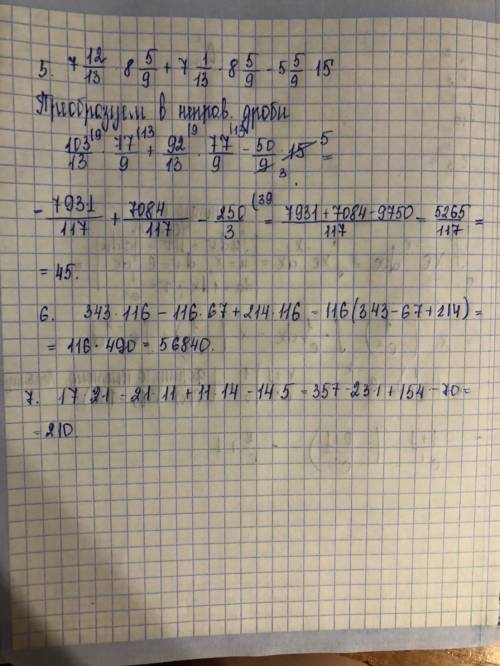 5. 7 12/13 · 8 5/9 + 7 1/13 · 8 5/9 - 5 5/9 · 15
Преобразуем в неправ. дроби
103/13 (9 · 77/9 (13 + 92/13 (9 · 77/9 (13 - 50/9 3 · 15 5 =
- 7931/117 + 7084/117 - 250/3 (39 = 7931+7084-9750/117 = 5265/117 =
= 45.
6. 343·116 - 116·67 + 214·116 = 116(343-67+214) =
= 116·490 = 56840.
7. 17·21 - 21·11 + 11·14 - 14·5 = 357-231+154-70=
=210